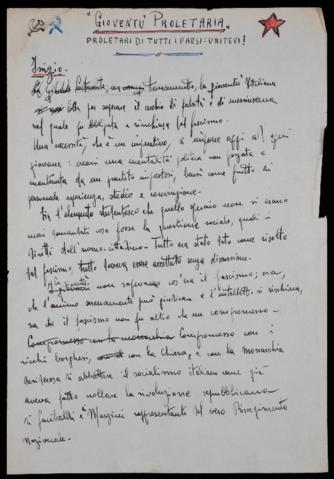 "GIOVENTÙ PROLETARIA"
PROLETARI DI TUTTI I PAESI: UNITEVI!
Inizio.
La la gioventù italiana
lotta per superare il cerchio di falsità e di
nel quale fu obbligata e rinchiusa dal fascismo.
Una necessità, che è un imperativo, si impone oggi ad ogni
giovane: crearsi una mentalità politica non forgiata e
mantenuta da un partito impostori, bensì come frutto di
personale esperienza, studio e
l'elemento studentesco che quello operaio non si erano
mai domandati cosa fosse la questione sociale, quali i
diritti dell'uomo-cittadino. Tutto era stato dato come risolto
dal fascismo, tutto doveva essere accettato senza discussione.
non sapevano cos'era il fascismo; ora,
che l'animo serenamente può giudicare e l'intelletto si rischiara,
sa che il fascismo non fu altro che un compromesso.
Compromesso con la monarchia Compromesso con i
ricchi borghesi, con la Chiesa, e con la monarchia
desiderosa di abbattere il socialismo italiano come già
aveva fatto crollare la rivoluzione repubblicana
di Garibaldi e Mazzini rappresentanti del vero Risorgimento
Nazionale.